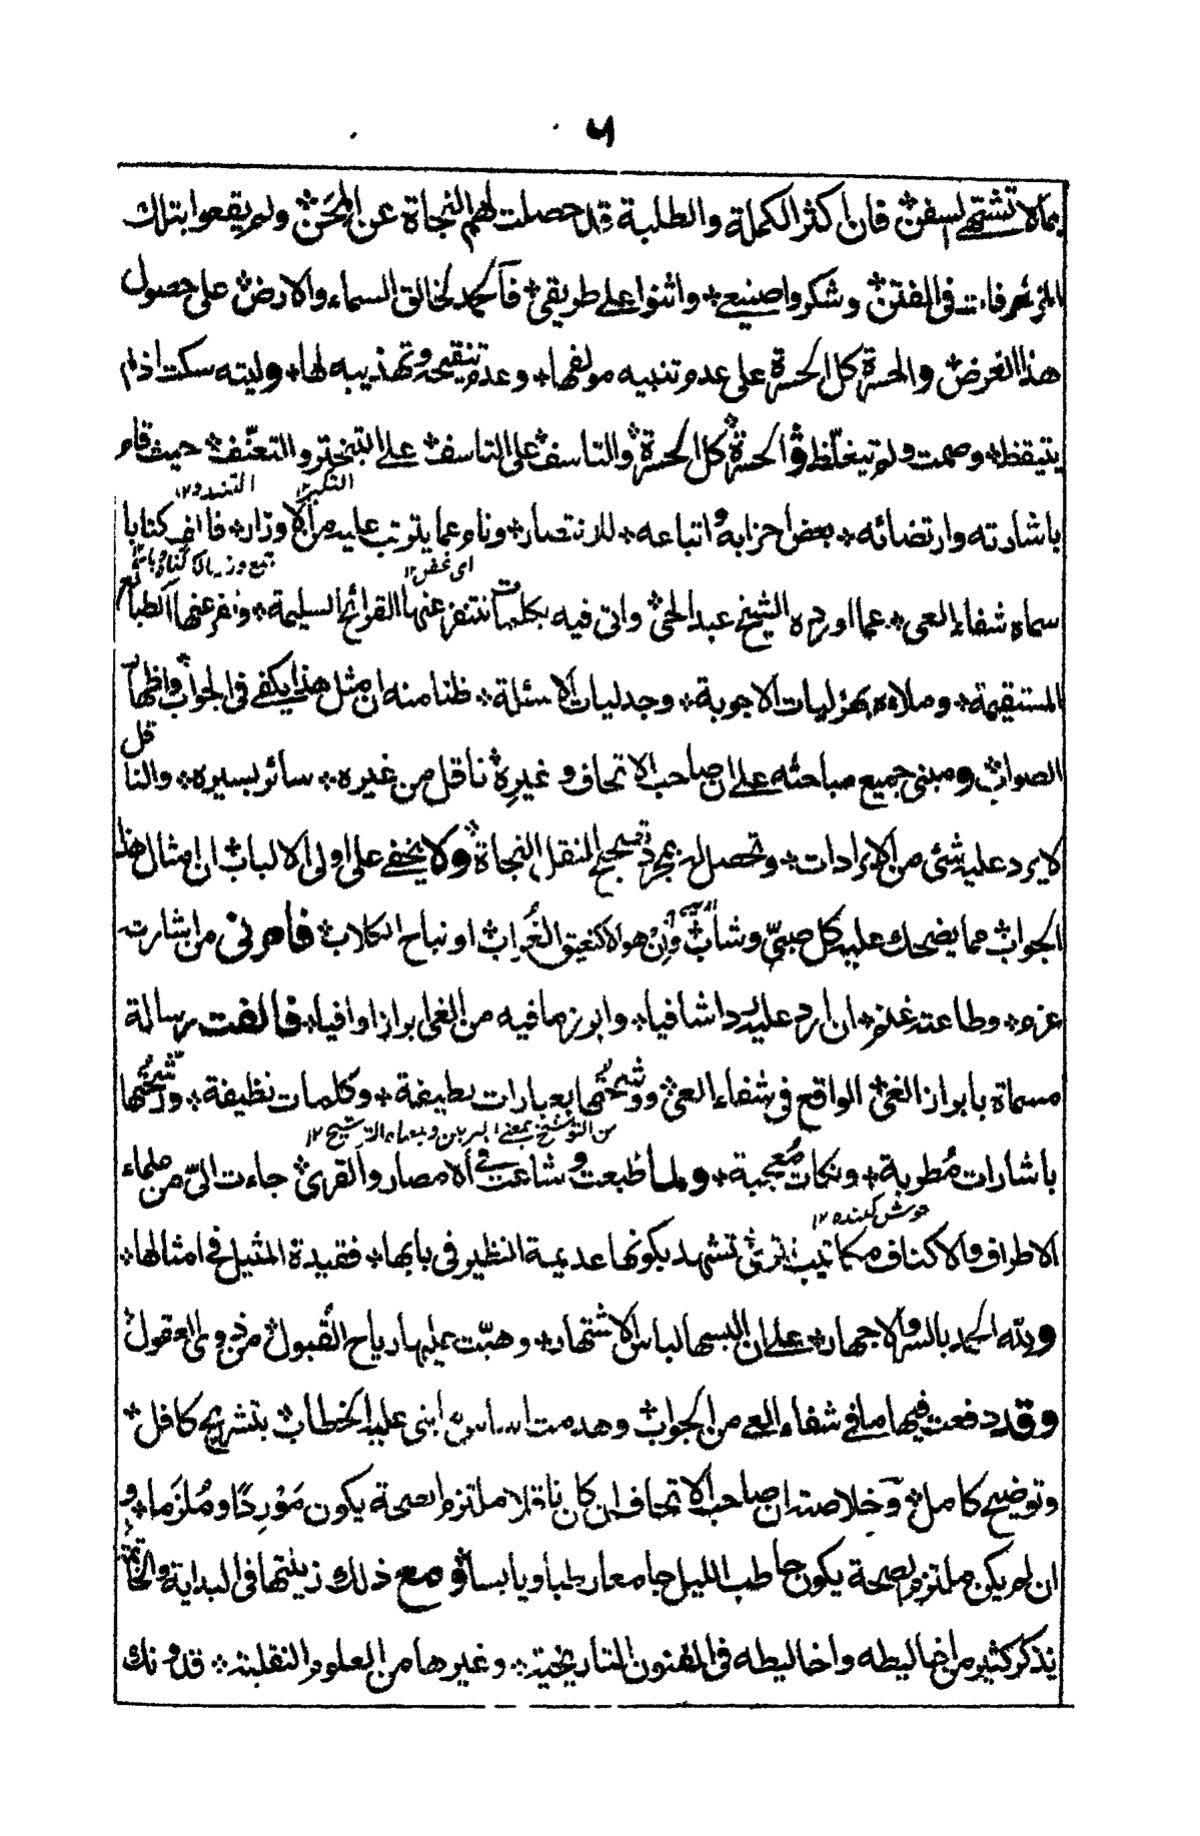 بما لا تشتهي السفن فان اكثر الكملة والطلبة قد حصلت لهم النجاة عن المحن ولم يقعوا بتلك
المزخرفات في الفتن وشكروا صنيعي واثنوا على طريقي فالحمد لخالق السماء والارض على حصول
هذا الغرض والحسرة كل الحسرة على عدم تنبيه مولفها وعدم تنقيحه وتهذيبه لها وليته سكت اذ لم
يتيقظ وصمت ولم يتغلّظ والحسرة كل الحسرة والتاسف على التاسف على التبختر والتعنّف حيث قام
التكبر ١٢ التشدد ١٢
باشارته وارتضائه بعض احزابه واتباعه للانتصار ونام عما يترتب عليه من الاوزار فالف كتابا
اى غفل ١٢ جمع وزر
سماه شفاء العي عما اورده الشيخ عبد الحي واتى فيه بكلمات تنتفر عنها القرائح السليمة ونفر عنها الطبائع
المستقيمة وملاه بهزليات الاجوبة وجدليات الاسئلة ظنا منه ان مثل هذا يكفي في الجواب واظهار
الصواب ومبنى جميع مباحثه على ان صاحب الاتحاف وغيره ناقل من غيره سائر بسيره والناقل
لا يرد عليه شئ من الايرادات وتحصل له بمجرد تصحيح النقل النجاة ولا يخفى على اولى الالباب ان امثال هذا
الجواب مما يضحك عليه كل صبيّ وشاب وان هو الا كنعيق الغُراب او نباح الكلاب فامرني من اشارته
عزم وطاعته غنم ان ارد عليه ردا شافيا وابرز ما فيه من الغي ابرازا وافيا فالفت رسالة
مسماة بابراز الغي الواقع في شفاء العي ووشحتُها بعبارات لطيفة وكلمات نظيفة ورشّحتُها
من التوشيح بمعنى
باشارات مُطربة ونكات مُعجبة ولما طبعت وشاعت في الامصار والقرى جاءت اليّ من علماء
خوش كننده ١٢
الاطراف والاكناف مكاتيب تترى تشهد بكونها عديمة النظير في بابها فقيدة المثيل في امثالها
ولله الحمد بالسر والاجهار على ان البسها لباس الاشتهار وهبّت عليها رياح القُبول من ذوي العقول
وقد دفعت فيها ما في شفاء العي من الجواب وهدمت اساس ما ابنى عليه الخطاب بتشريح كافل
وتوضيح كامل وخلاصته ان صاحب الاتحاف ان كان ناقلا ملتزم الصحة يكون مَوْرِدًا ومُلزَما و
ان لم يكن ملتزم الصحة يكون حاطب الليل جامعا رطبا ويابسا ومع ذلك زينتها في البداية والخاتمة
بذكر كثير من اغاليطه واخاليطه في الفنون التاريخية وغيرها من العلوم النقلية قدونك